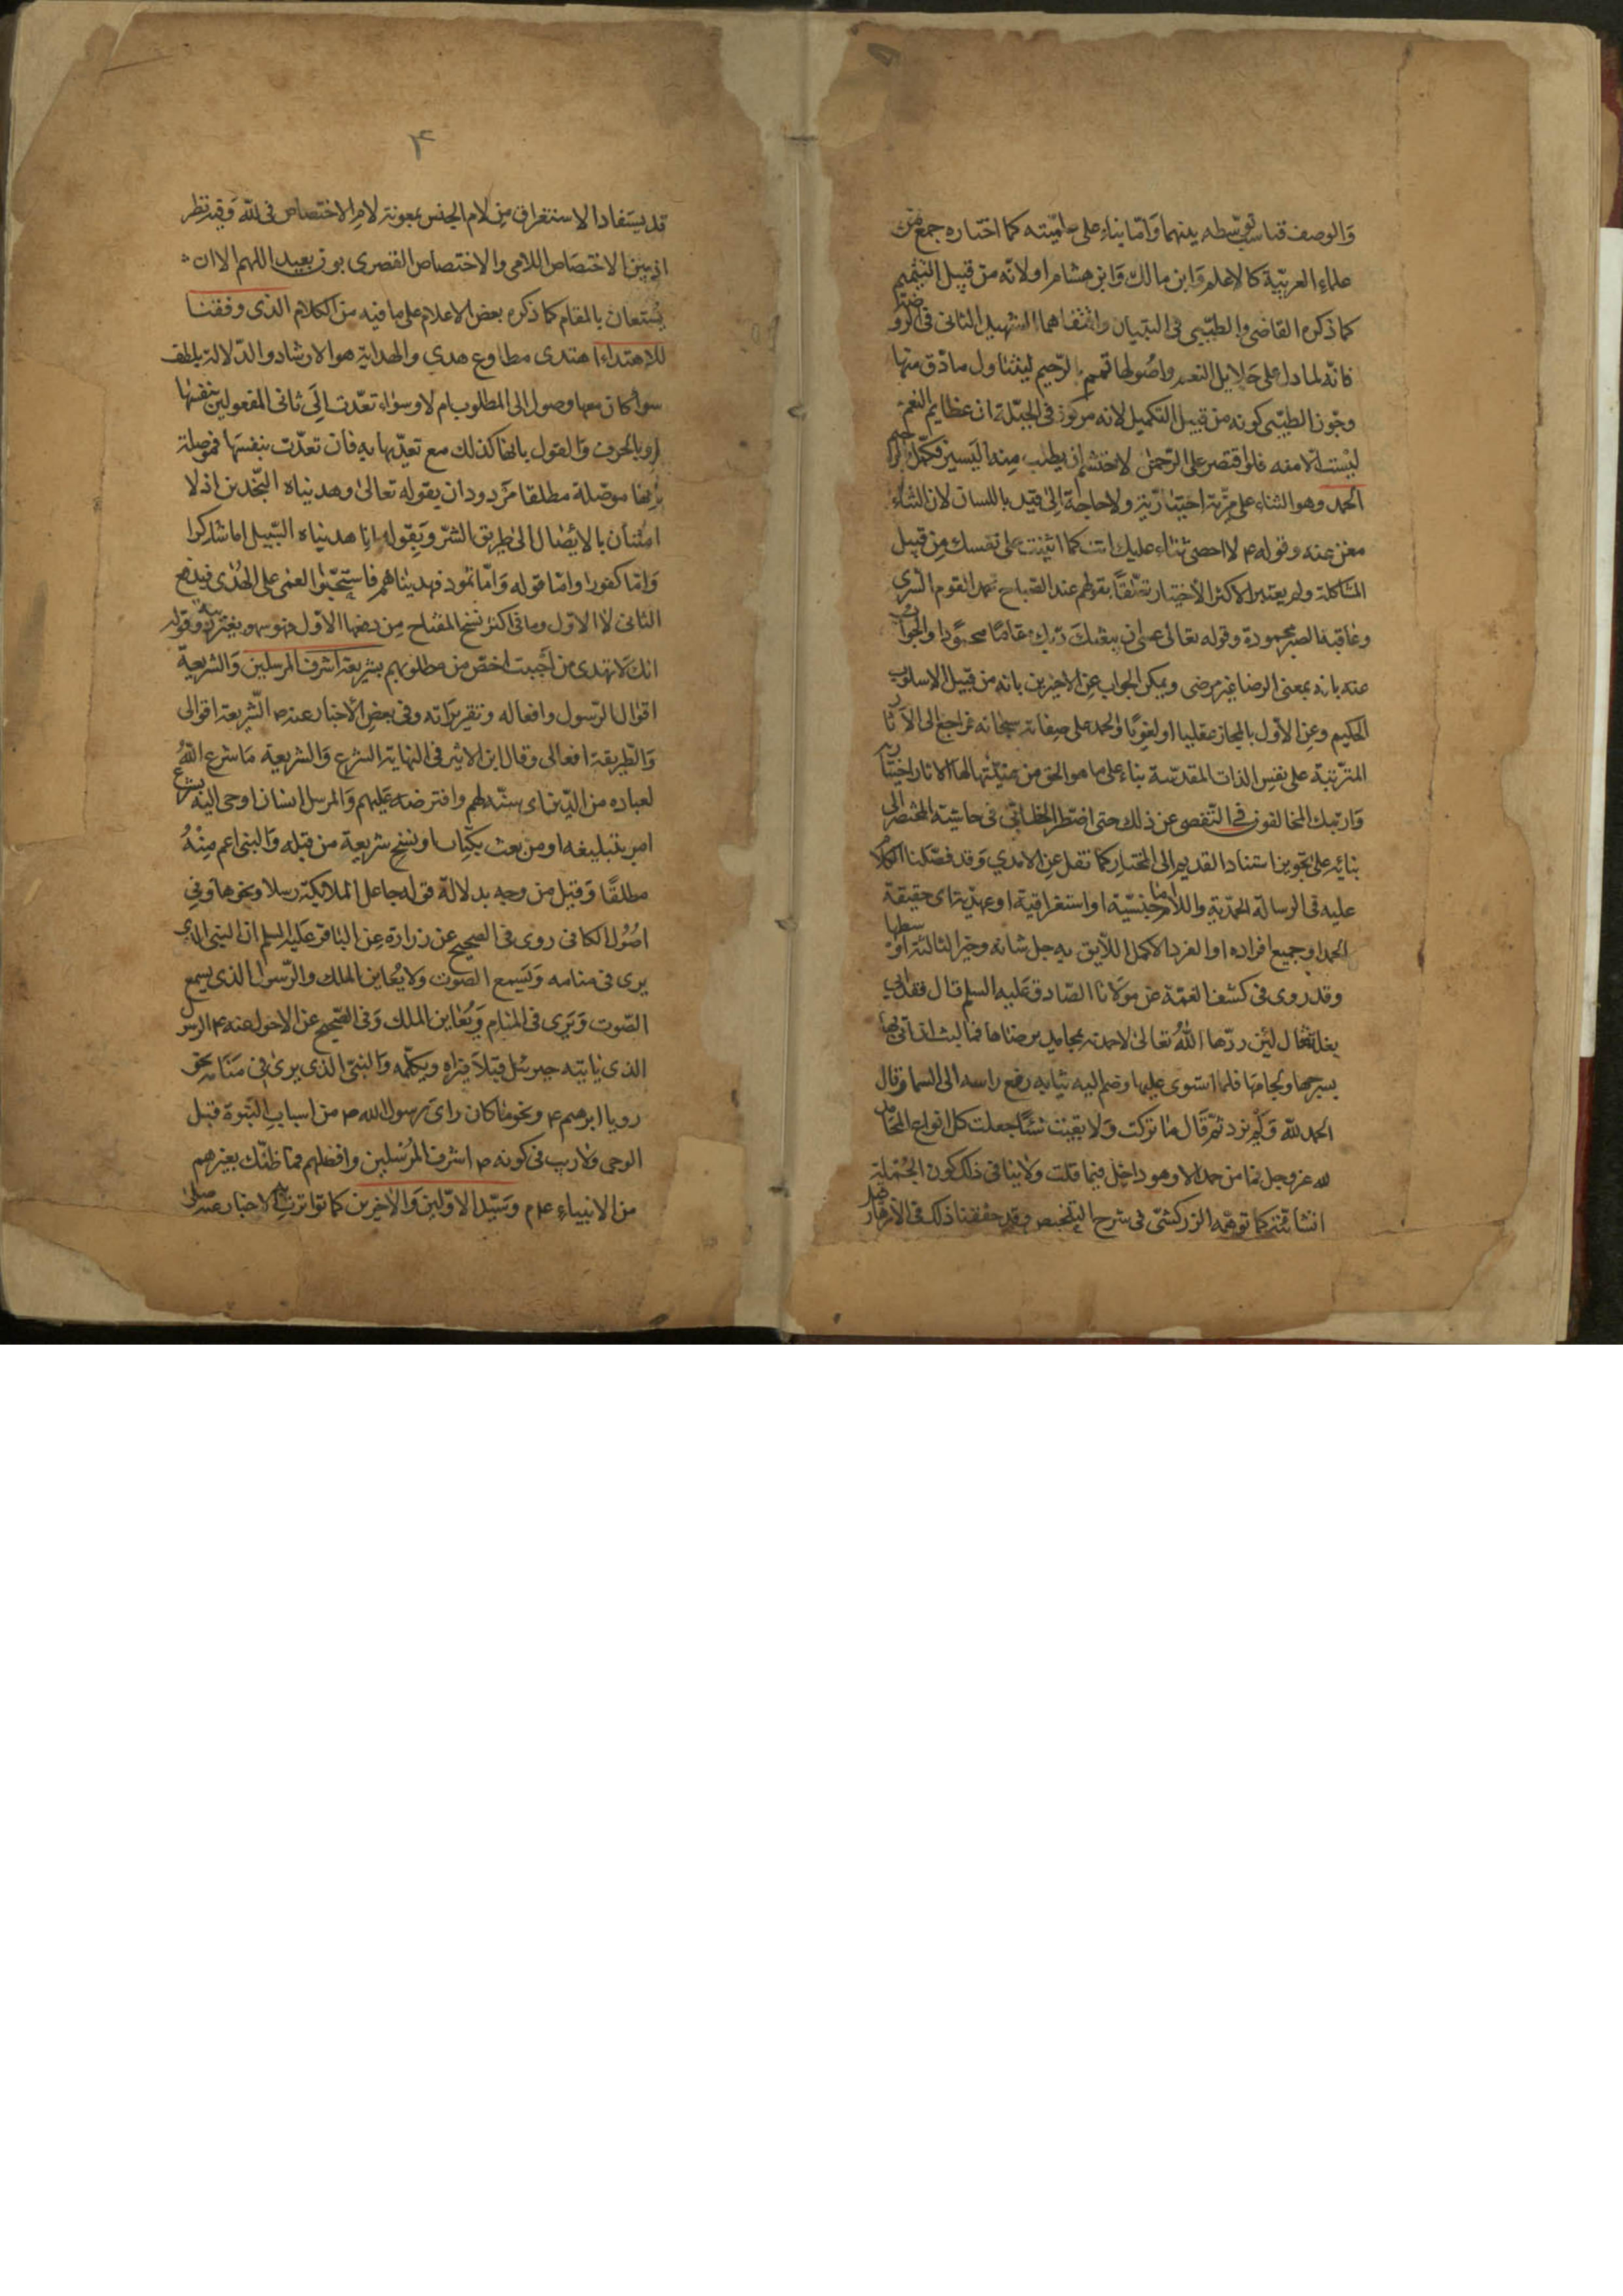 والوصف فناسب توسطه بينهما وامّا بناء على علميّته كما اختاره جمع من
علماء العربيّة كالاعلم وابن مالك وابن هشام او لانّه من قبيل التتميم
كما ذكره القاضي والطيّبي في التبيان واقتفاهما الشهيد الثاني في الروضة
فانّه لما دل على جلايل النعم واصولها تمم بالرّحيم ليتناول ما دقّ منها
وجوّز الطيّبي كونه من قبيل التكميل لانه مركوز في الجبلّة ان عظايم النعم
ليست الا منه فلو اقتصر على الرّحمن لاحتشم ان يطلب منه اليسير فكمّل بالرحيم
الحمد وهو الثناء على مزيّة اختياريّة ولا حاجة الى قيد باللسان لان الثناء
مغن عنه وقوله ع لا احصي ثناء عليك انت كما اثنيت على نفسك من قبيل
المشاكلة ولم يعتبر الاكثر الاختيار تعلّقًا بقولهم عند الصّباح يحمد القوم السّرى
وعاقبة الصبر محمودة وقوله تعالى عسى ان يبعثك ربّك مقامًا محمودا والجواب
عنه بانه بمعنى الرضا غير مرضي ويمكن الجواب عن الاخيرين بانه من قبيل الاسلوب
الحكيم وعن الاوّل بالمجاز عقليا او لغويًا والحمد على صفاته سبحانه راجع الى الآثار
المترتبة على نفس الذات المقدّسة بناء على ما هو الحق من عينيّتها لها الاثار اختيارية
وارتبك المخالفون في التفصي عن ذلك حتى اضطر الخطابي في حاشية المختصر الى
بنائه على تجويز استناد القديم الى المختار كما نقل عن الامدي وقد فصّلنا الكلام
عليه في الرسالة الحمديّة واللام امّا جنسيّة او استغراقية او عهديّة اي حقيقة
الحمد او جميع افراده او الفرد الاكمل اللّايق به جل شانه وخير الثالثة اوسطها
وقد روى في كشف الغمّة عن مولانا الصّادق عليه السلم قال فقد ابي
بغلة فقال لئن ردّها الله تعالى لاحمدنه بمحامد يرضاها فما لبث ان اتي بها
بسرجها ولجامها فلما استوى عليها وضم اليه ثيابه رفع راسه الى السما وقال
الحمد للّه ولم يزد ثمّ قال ما تركت ولا بقيت شيئًا جعلت كل انواع المحامد
لله عز وجل فما من حمد الا وهو داخل فيما قلت ولا ينافي ذلك كون الجملة
انشائية كما توهّمه الزركشيّ في شرح التلخيص وقد حققنا ذلك في الازهار
۴
قد يستفاد الاستغراق من لام الجنس بمعونة لام الاختصاص في للّه وفيه نظر
اذ بين الاختصاص اللامي والاختصاص القصري بون بعيد اللهم الا ان
يستعان بالمقام كما ذكره بعض الاعلام على ما فيه من الكلام الذي وفقنا
للاهتداء اهتدى مطاوع هدي والهداية هو الارشاد والدّلالة بلطف
سواء كان معها وصول الى المطلوب ام لا وسواء تعدّت الى ثاني المفعولين بنفسها
او بالحرف والقول بانها كذلك مع تعدّيها به فان تعدّت بنفسها فموصلة
بانها موصّلة مطلقا مردودان بقوله تعالى وهديناه النّجدين اذ لا
امتنان بالايصال الى طريق الشرّ وبقوله انا هديناه السّبيل اما شاكرا
وامّا كفورا وامّا قوله وامّا ثمود فهديناهم فاستحبّوا العمى على الهدى فيدفع
الثاني لا الاوّل وما في اكثر نسخ المفتاح من دفعها الاوّل فهو سهو بغير ريبة وقوله
انك لا تهدي من احببت اخصّ من مطلوبهم بشريعة اشرف المرسلين والشريعة
اقوال الرّسول وافعاله وتقريراته وفي بعض الاخبار عنه ص الشّريعة اقوالي
والطّريقة افعالي وقال ابن الاثير في النهاية الشرع والشريعة ما شرع اللّه
لعباده من الدّين اي سنّه لهم وافترضه عليهم والمرسل انسان اوحي اليه بشرع
امر بتبليغه او من بعث بكتاب او نسخ شريعة من قبله والنبي اعم منه
مطلقًا وقيل من وجه بدلالة قوله جاعل الملائكة رسلا ونحوها وفي
اصول الكافي روى في الصحيح عن زرارة عن الباقر عليه السلم ان النبي الذي
يرى في منامه ويسمع الصّوت ولا يعاين الملك والرّسول الذي يسمع
الصّوت ويرى في المنام ويعاين الملك وفي الصّحيح عن الاحول عنه ع الرسول
الذي ياتيه جبرئيل قبلا فيراه ويكلّمه والنبيّ الذي يرى في منامه نحو
رويا ابرهيم ع ونحو ما كان راى رسول الله ص من اسباب النّبوة قبل
الوحي ولا ريب في كونه ص اشرف المرسلين وافضلهم فما ظنّك بغيرهم
من الانبياء علم وسيّد الاوّلين والاخرين كما تواترت به الاخبار عنه صلى